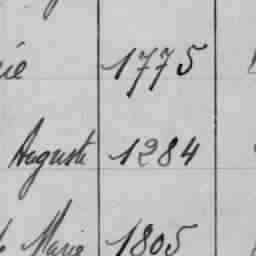 1775
Auguste 1284
Marie 1805